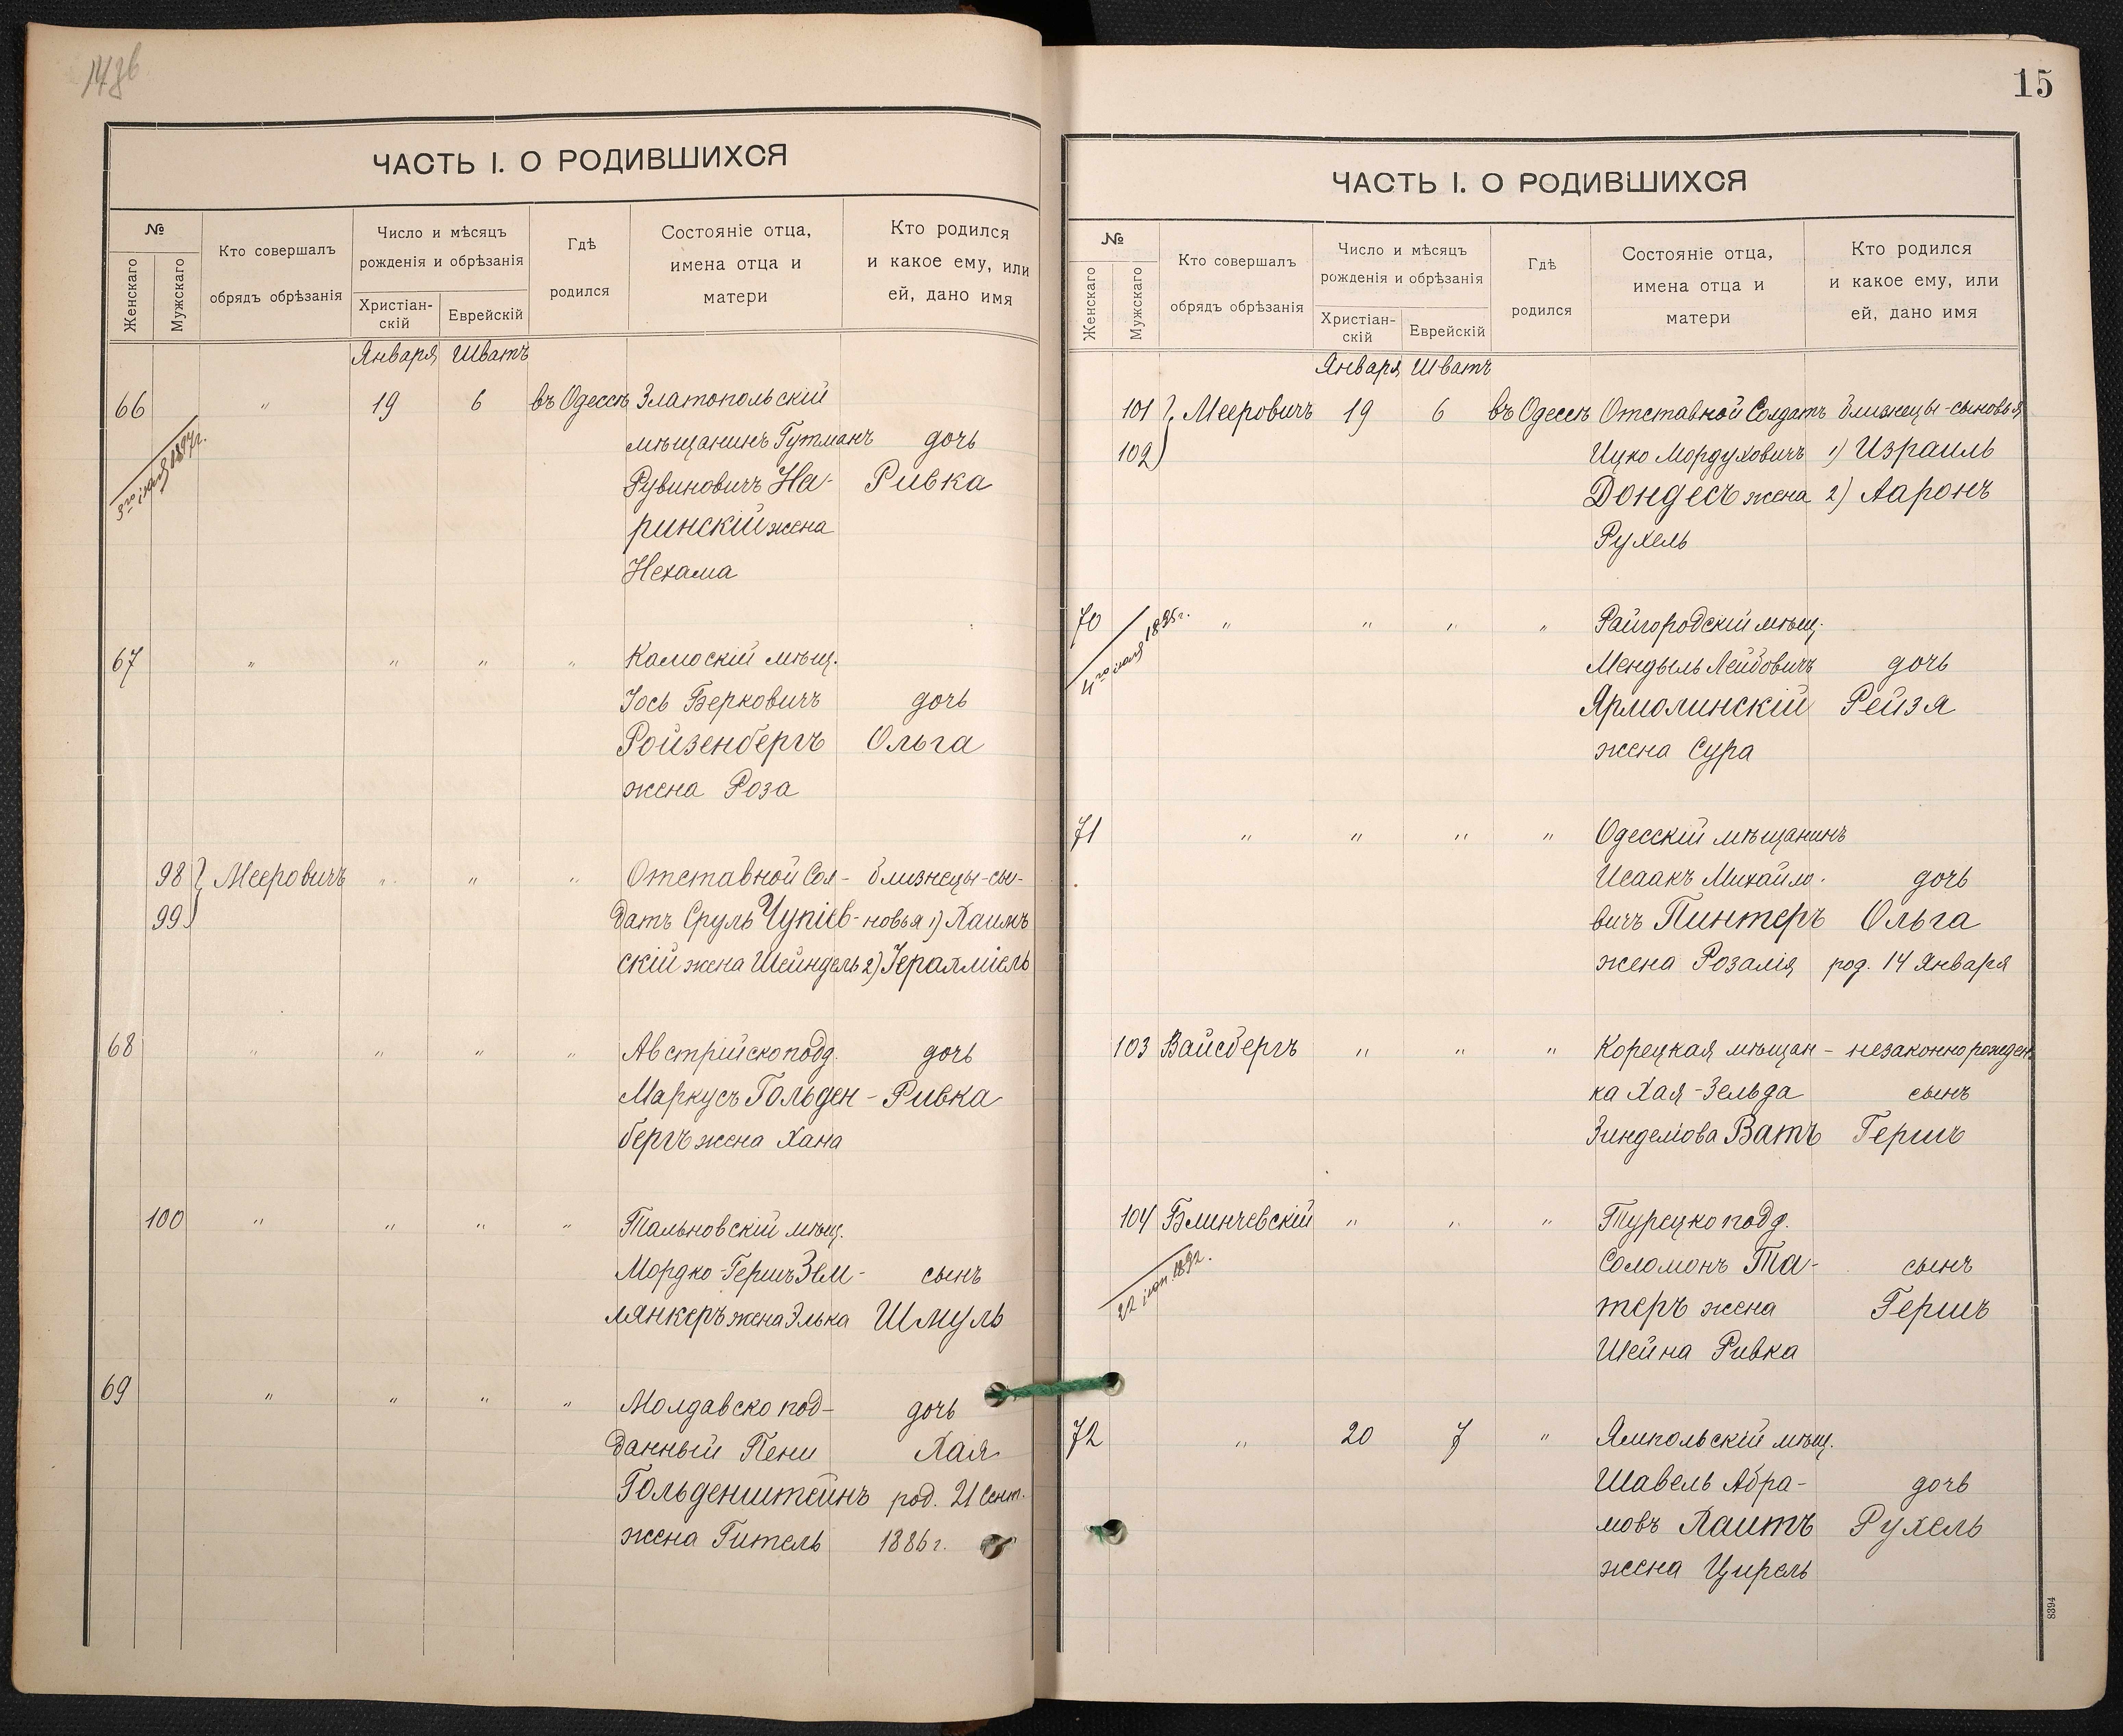 ЧАСТЬ I. О РОДИВШИХСЯ
№
Женскаго
Мужскаго
Кто совершалъ
обрядъ обрѣзанія
Число и мѣсяцъ
рожденія и обрѣзанія
Христіан-
скій
Еврейскій
Гдѣ
родился
Состояніе отца,
имена отца и
матери
Кто родился
и какое ему, или
ей, дано имя
Января Шватъ
66 " 19 6 въ Одессѣ Златопольскій
мѣщанинъ Гутманъ дочь
Рувиновичъ На- Ривка
ринскій жена
Нехама
67 " " " " мѣщ.
Іось Берковичъ дочь
Ройзенбергъ Ольга
жена Роза
98 Мееровичъ " " " Отставной Сол- близнецы-сы-
99 датъ Сруль новья 1) Хаимъ
скій жена Шейндель 2) Іерахміель
68 " " " " Австрійскоподд. дочь
Маркусъ Гольден- Ривка
бергъ жена Хана
100 " " " " Тальновскій мѣщ.
Мордко-Гершъ Зем- сынъ
лянкеръ жена Элька Шмуль
69 " " " " Молдавско под- дочь
данный Пени Хая
Гольденштейнъ род. 21 Сент.
жена Гитель 1886 г.
15
ЧАСТЬ I. О РОДИВШИХСЯ
№
Женскаго
Мужскаго
Кто совершалъ
обрядъ обрѣзанія
Число и мѣсяцъ
рожденія и обрѣзанія
Христіан-
скій
Еврейскій
Гдѣ
родился
Состояніе отца,
имена отца и
матери
Кто родился
и какое ему, или
ей, дано имя
Января Шватъ
101 Мееровичъ 19 6 въ Одессѣ Отставной Солдатъ близнецы-сыновья
102 Ицко Мордуховичъ 1) Израиль
Дондесъ жена 2) Ааронъ
Рухель
70 " " " " Райгородскій мѣщ.
Мендель Лейбовичъ дочь
Ярмолинскій Рейзя
жена Сура
71 " " " " Одесскій мѣщанинъ
Исаакъ Михайло- дочь
вичъ Пинтеръ Ольга
жена Розалія род. 14 Января
103 Вайсбергъ " " " Корецкая мѣщан- незаконно рожден.
ка Хая-Зельда сынъ
Ватъ Гершъ
104 Блинчевскій " " " Турецко подд.
Соломонъ Та- сынъ
теръ жена Гершъ
Шейна Ривка
72 " 20 7 " Ямпольскій мѣщ.
Шавель Абра- дочь
мовъ Хаитъ Рухель
жена Цирель
8394